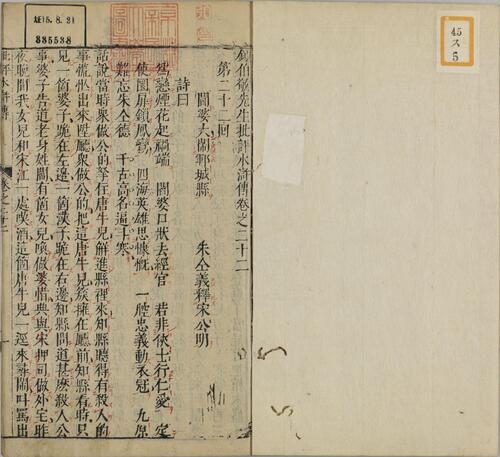 鍾伯敬先生批評水滸傳卷之二十二
第二十二回
閻婆大鬧鄆城縣　朱仝義釋宋公明
詩曰
爲戀煙花起禍端　閻婆口狀去經官　若非俠士行仁愛　定
使圜扉鎖鳳鸞　四海英雄思慷慨　一腔忠義動衣冠　九原
難忘朱仝德　千古高名逼斗寒
話說當時衆做公的拏住唐牛兒解進縣裡來知縣聽得有殺人的
事慌忙出來陞廳衆做公的把這唐牛兒簇擁在廳前知縣看時只
見一箇婆子跪在左邊一箇漢子跪在右邊知縣問道甚麽殺人公
事婆子告道老身姓閻有箇女兒喚做婆惜典與宋押司做外宅昨
夜晚間我女兒和宋江一處喫酒這箇唐牛兒一逕來尋鬧叫罵出
批評水滸傳
卷之二十二
昭15.8.21
335538
45
ス
5